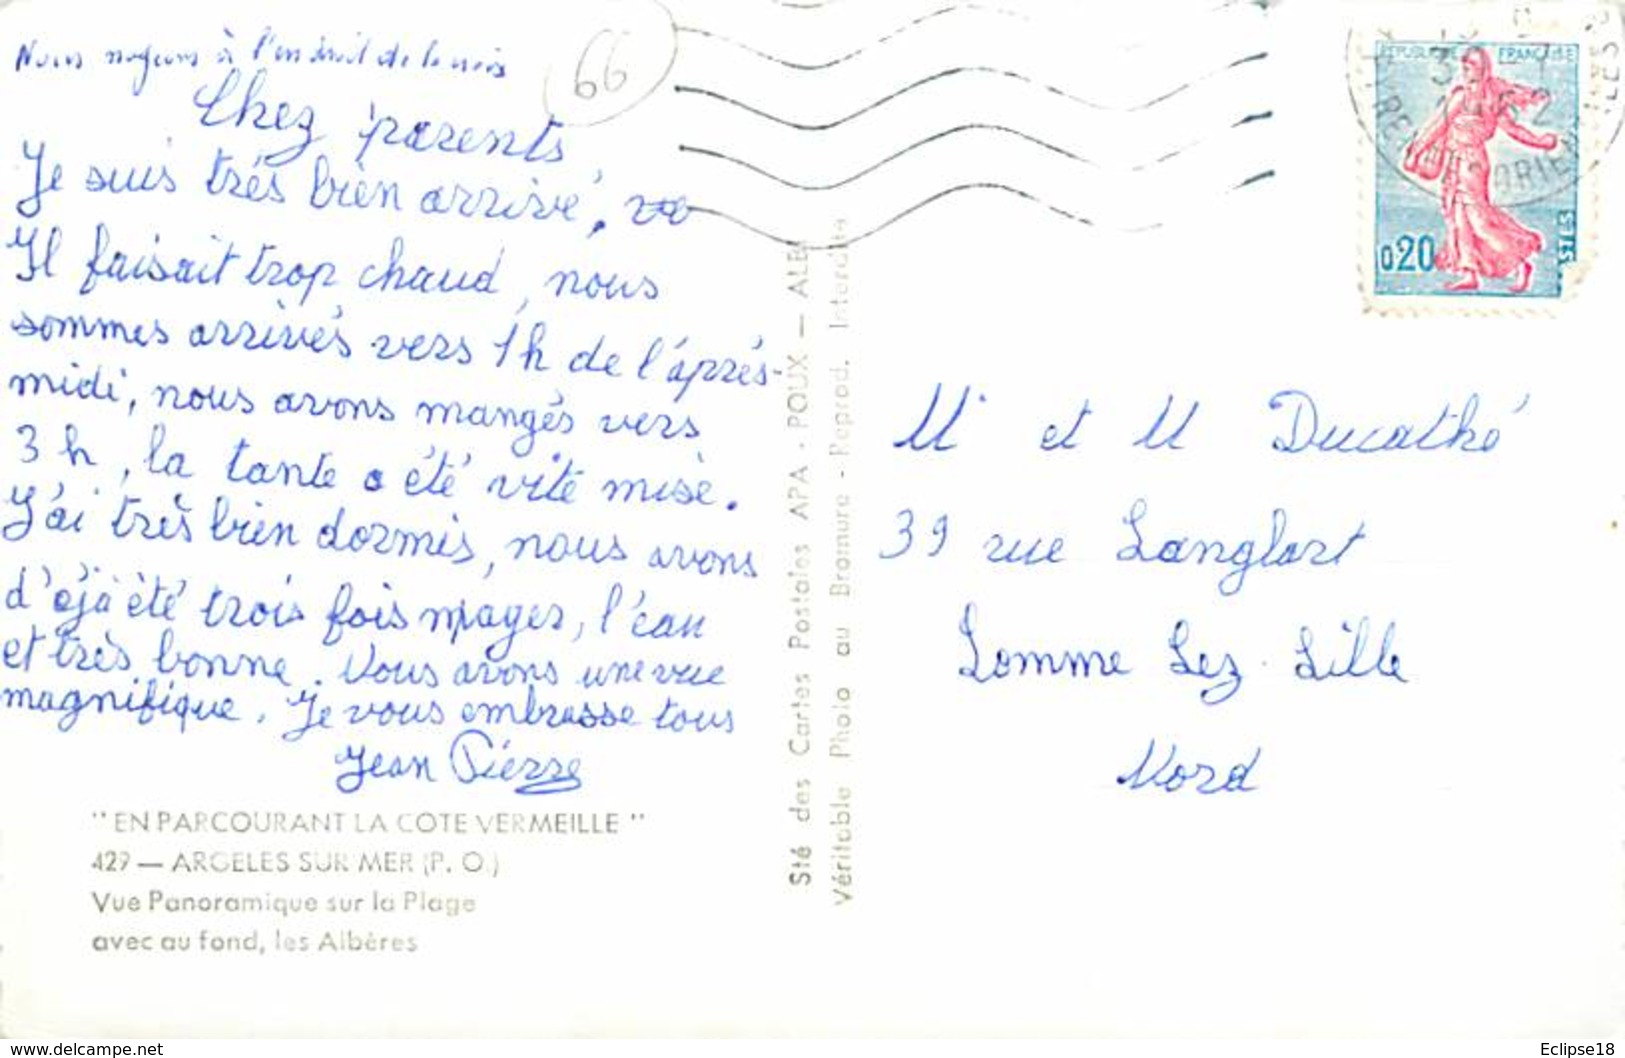 Nous nageons à l'endroit de la croix
66
Chez parents
Je suis trés bien arrivé,
Il faisait trop chaud, nous
sommes arrivés vers 1h de l'áprés-
midi, nous avons mangés vers
3 h, la tante a été vite mise.
J'ai très bien dormis, nous avons
d'éjà été trois fois nager, l'eau
et très bonne. Nous avons une vue
magnifique. Je vous embrasse tous
Jean Pierre
"EN PARCOURANT LA COTE VERMEILLE"
429 — ARGELES SUR MER (P. O.)
Vue Panoramique sur la Plage
avec au fond, les Albères
Sté des Cartes Postales APA - POUX — ALBI
Véritable Photo au Bromure - Reprod. Interdite
REPUBLIQUE FRANÇAISE
0,20
POSTES
M. et M Ducathé
39 rue Langlart
Lomme Lez-Lille
Nord
www.delcampe.net
Eclipse18